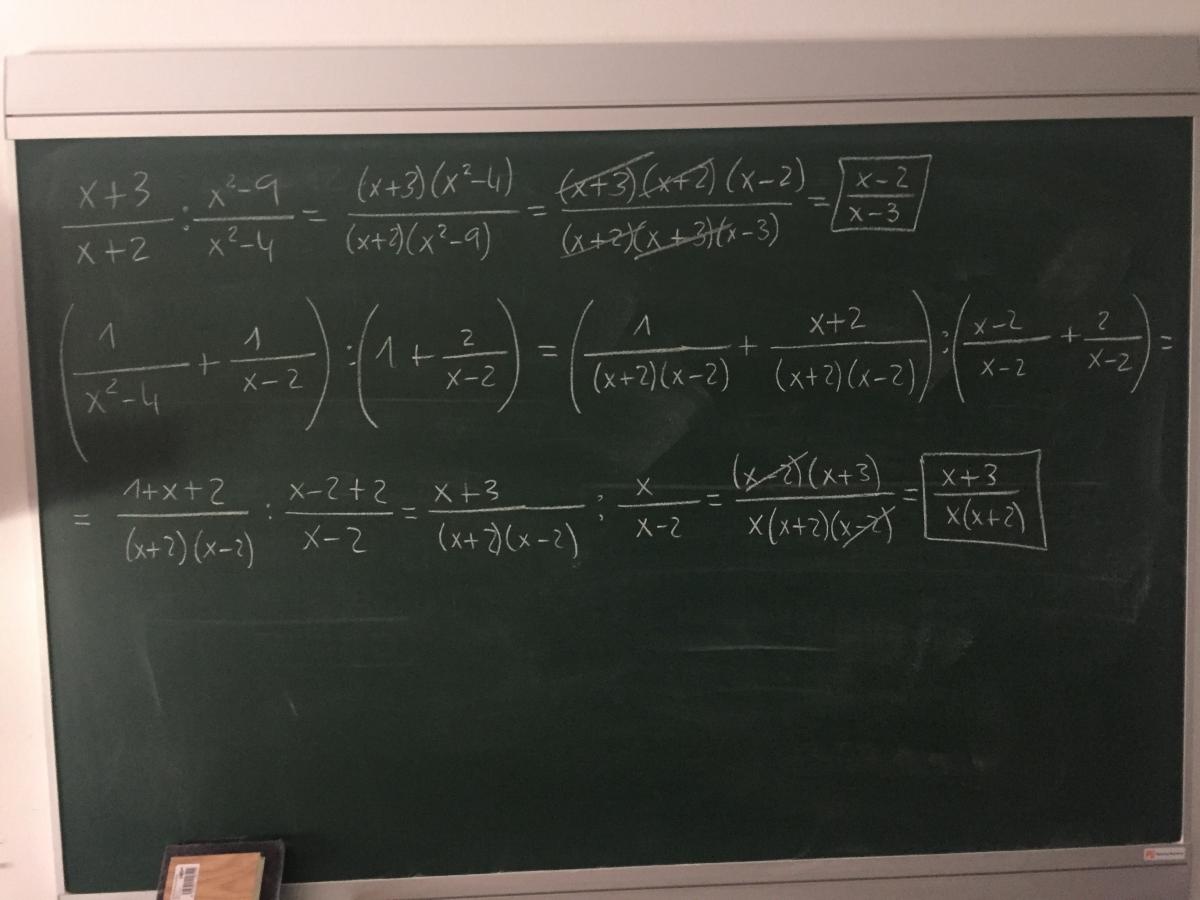 (x+3)/(x+2) : (x²-9)/(x²-4) = ((x+3)(x²-4))/((x+2)(x²-9)) = ((x+3)(x+2)(x-2))/((x+2)(x+3)(x-3)) = (x-2)/(x-3)
(1/(x²-4) + 1/(x-2)) : (1 + 2/(x-2)) = (1/((x+2)(x-2)) + (x+2)/((x+2)(x-2))) : ((x-2)/(x-2) + 2/(x-2)) =
= (1+x+2)/((x+2)(x-2)) : (x-2+2)/(x-2) = (x+3)/((x+2)(x-2)) : x/(x-2) = ((x-2)(x+3))/(x(x+2)(x-2)) = (x+3)/(x(x+2))